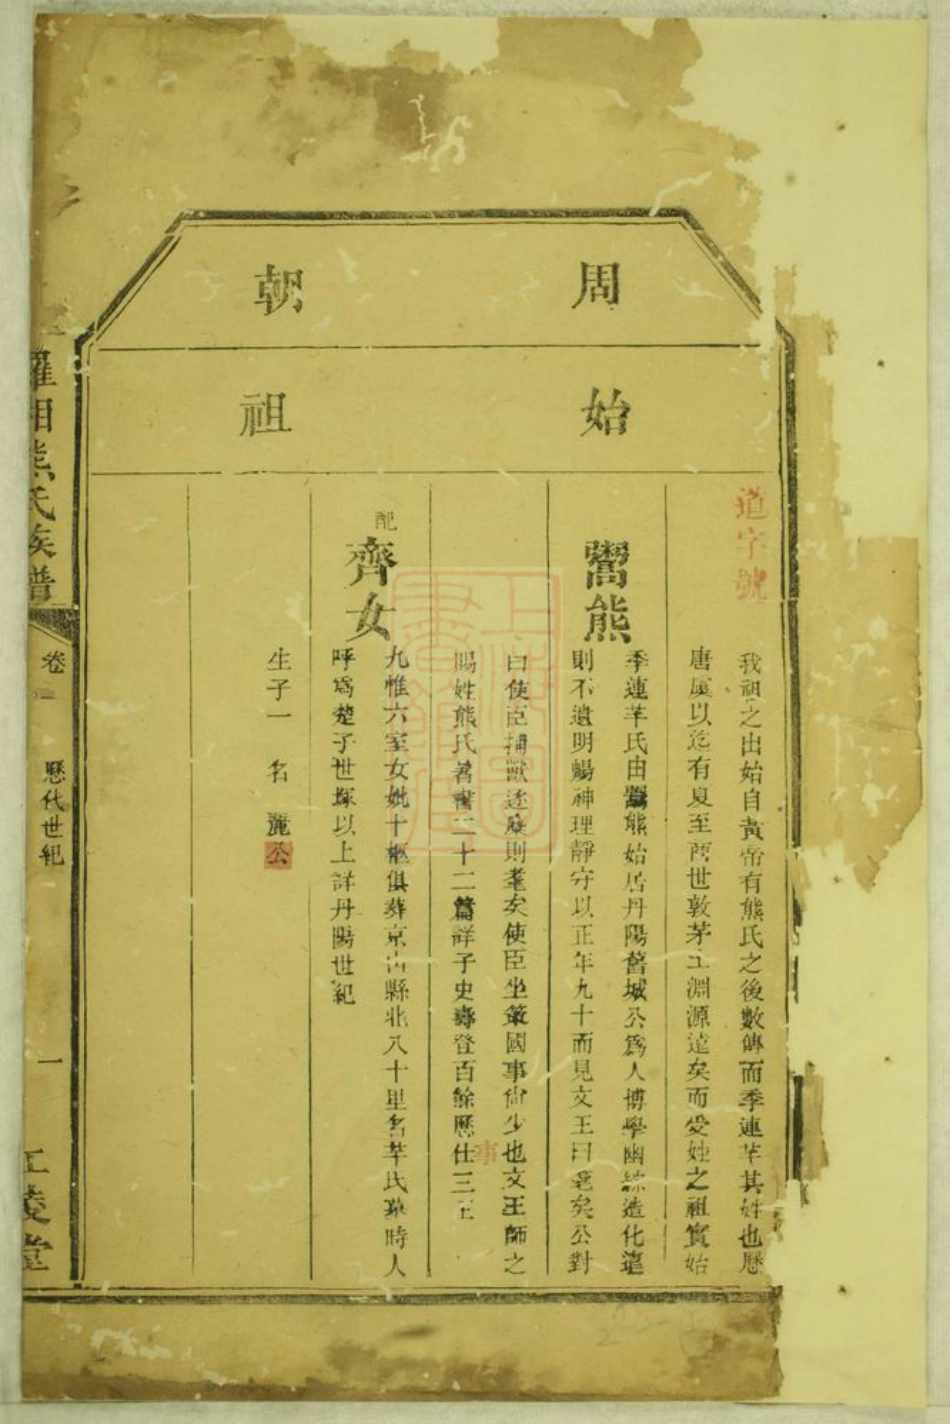 周朝
始祖
道字號
我祖之出始自黃帝有熊氏之後數傳而季連芈其姓也歷
唐虞以迄有夏至商世敦茅土淵源遠矣而受姓之祖實始
鬻熊
季連芈氏由鬻熊始居丹陽舊城公為人博學幽綜造化遠
則不遺明暢神理靜守以正年九十而見文王曰耄矣公對
曰使臣捕獸逐麋則耄矣使臣坐策國事尙少也文王師之
賜姓熊氏著書二十二篇詳子史壽登百餘歷仕三王
事
配
齊女
九惟六室女妣十柩俱葬京山縣北八十里名芈氏墓時人
呼為楚子世塚以上詳丹陽世紀
生子一 名 麗公
羅湘熊氏族譜
卷一
歷代世紀
一
江陵堂